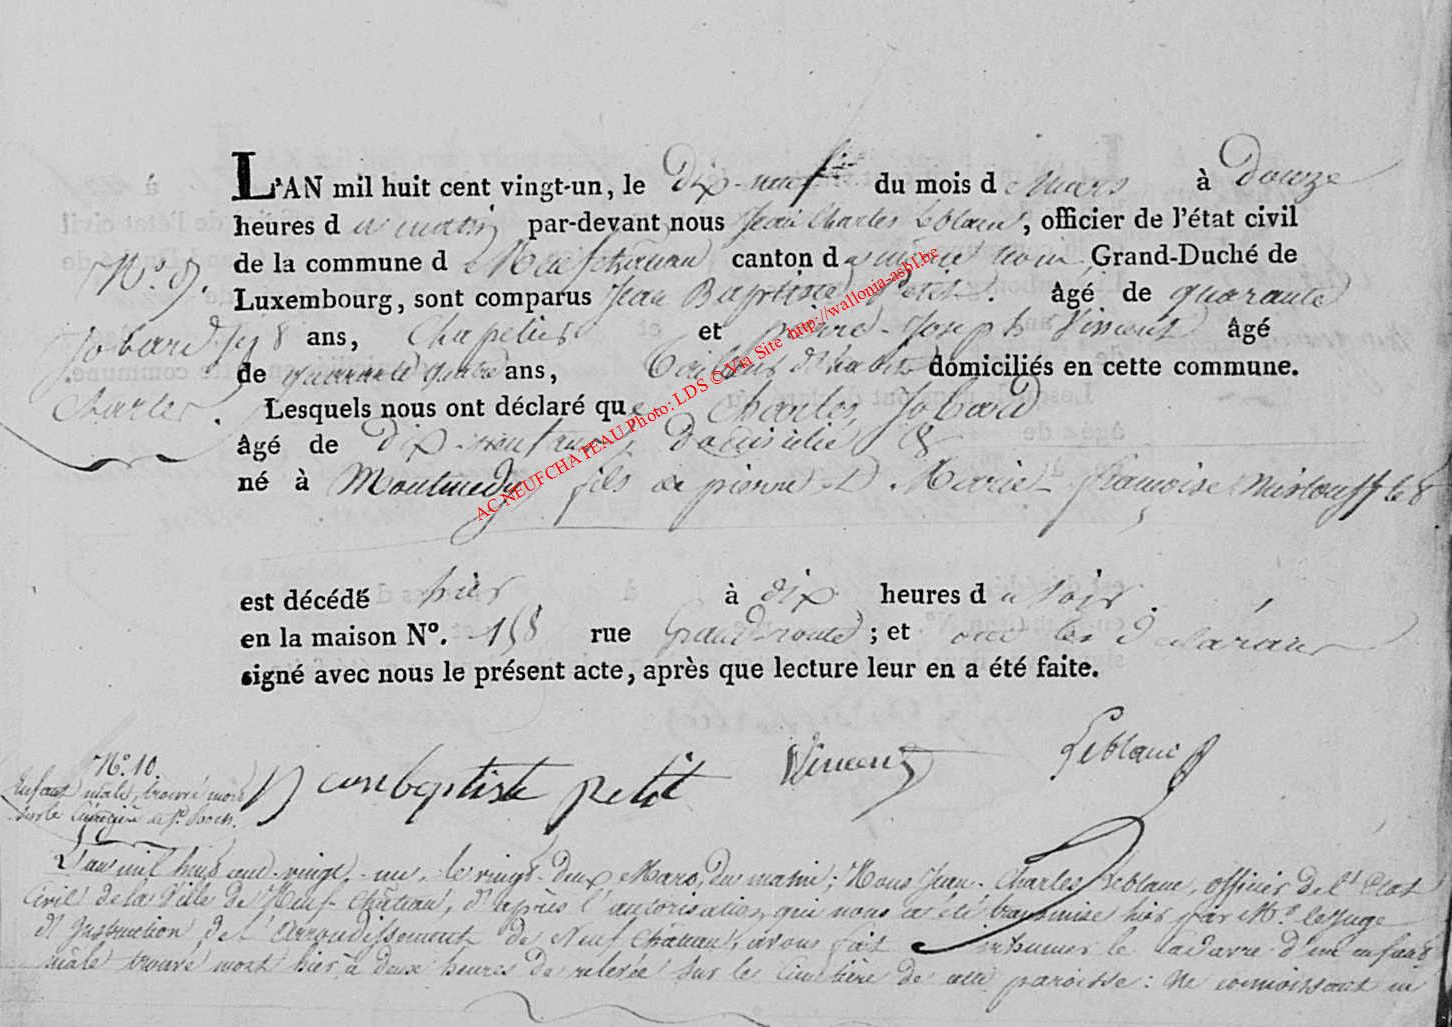 L'AN mil huit cent vingt-un, le dix-neuf du mois de Mars à Douze
heures du matin par-devant nous Jean Charles Leblanc, officier de l'état civil
de la commune de Neufchateau canton du même nom Grand-Duché de
N.º 9.
Luxembourg, sont comparus Jean Baptiste Petit. âgé de quarante
Jobard
8 ans, Chapelier et pierre-Joseph Vincent âgé
de quarante quatre ans, Tailleur d'habits domiciliés en cette commune.
Charles.
Lesquels nous ont déclaré que Charles Jobard
âgé de dix-neuf ans Domicilié
né à Montmedy fils de pierre & Marie françoise
est décédé hier à dix heures du soir.
en la maison Nº. 158 rue Grand-route; et ont les déclarans
signé avec nous le présent acte, après que lecture leur en a été faite.
Jean baptiste petit Vincent Leblanc
Nº. 10.
Enfant mâle, trouvé mort
sur le Cimetière
L'an mil huit cent-vingt-un, le vingt-deux Mars, du matin; Nous Jean-Charles Leblanc, officier de l'Etat
Civil de la Ville de Neuf-Château, d'après l'autorisation qui nous a été transmise hier par Mr. le Juge
d'Instruction de l'Arrondissement de Neuf Château, avons fait inhumer le Cadavre d'un enfant
mâle trouvé mort hier à deux heures de relevée sur le Cimetière de cette paroisse: Ne connoissant ni
AC NEUFCHATEAU Photo: LDS © Via Site http://wallonia-asbl.be